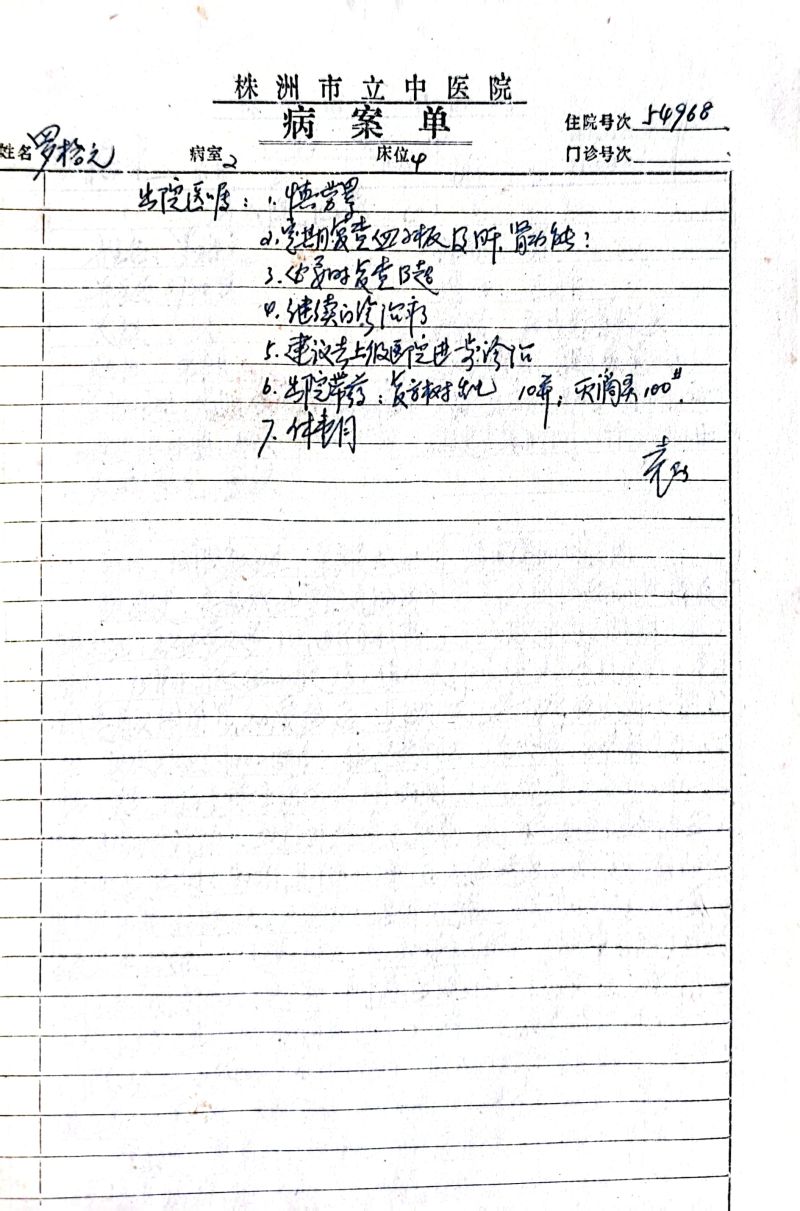 株洲市立中医院
病案单
住院号次 54968
姓名 罗 病室2 床位4 门诊号次
出院医嘱：1. 慎劳累
2. 定期复查血小板及肝肾功能
3. 必要时复查B超
4. 继续门诊治疗
5. 建议去上级医院进步诊治
6. 出院带药：复方 10 100#.
7. 休壹月
袁